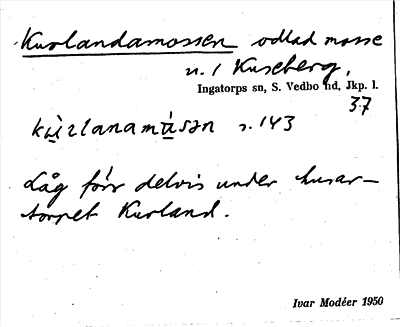 Kurlandamossen odlad mosse
n. 1 Kuseberg,
Ingatorps sn, S. Vedbo hd, Jkp. l.
37
kùrlanamásən s. 143
Låg förr delvis under husar-
torpet Kurland.
Ivar Modéer 1950